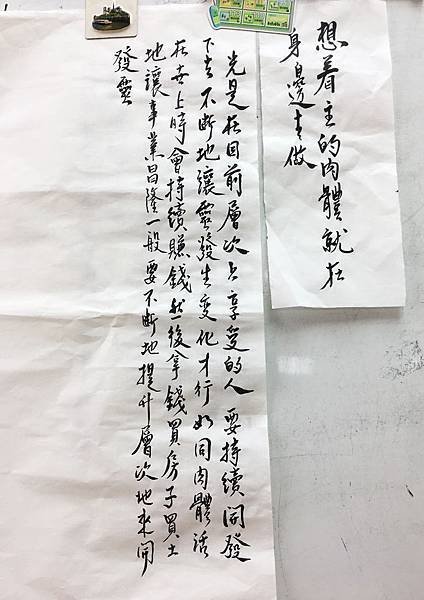 想着主的肉體就在
身邊去做
光是在目前層次上享受的人要持續開發
下去不斷地讓靈發生变化才行如同肉體活
在世上時會持續賺錢然後拿錢買房子買土
地讓事業昌隆一般要不斷地提升層次地來開
發靈